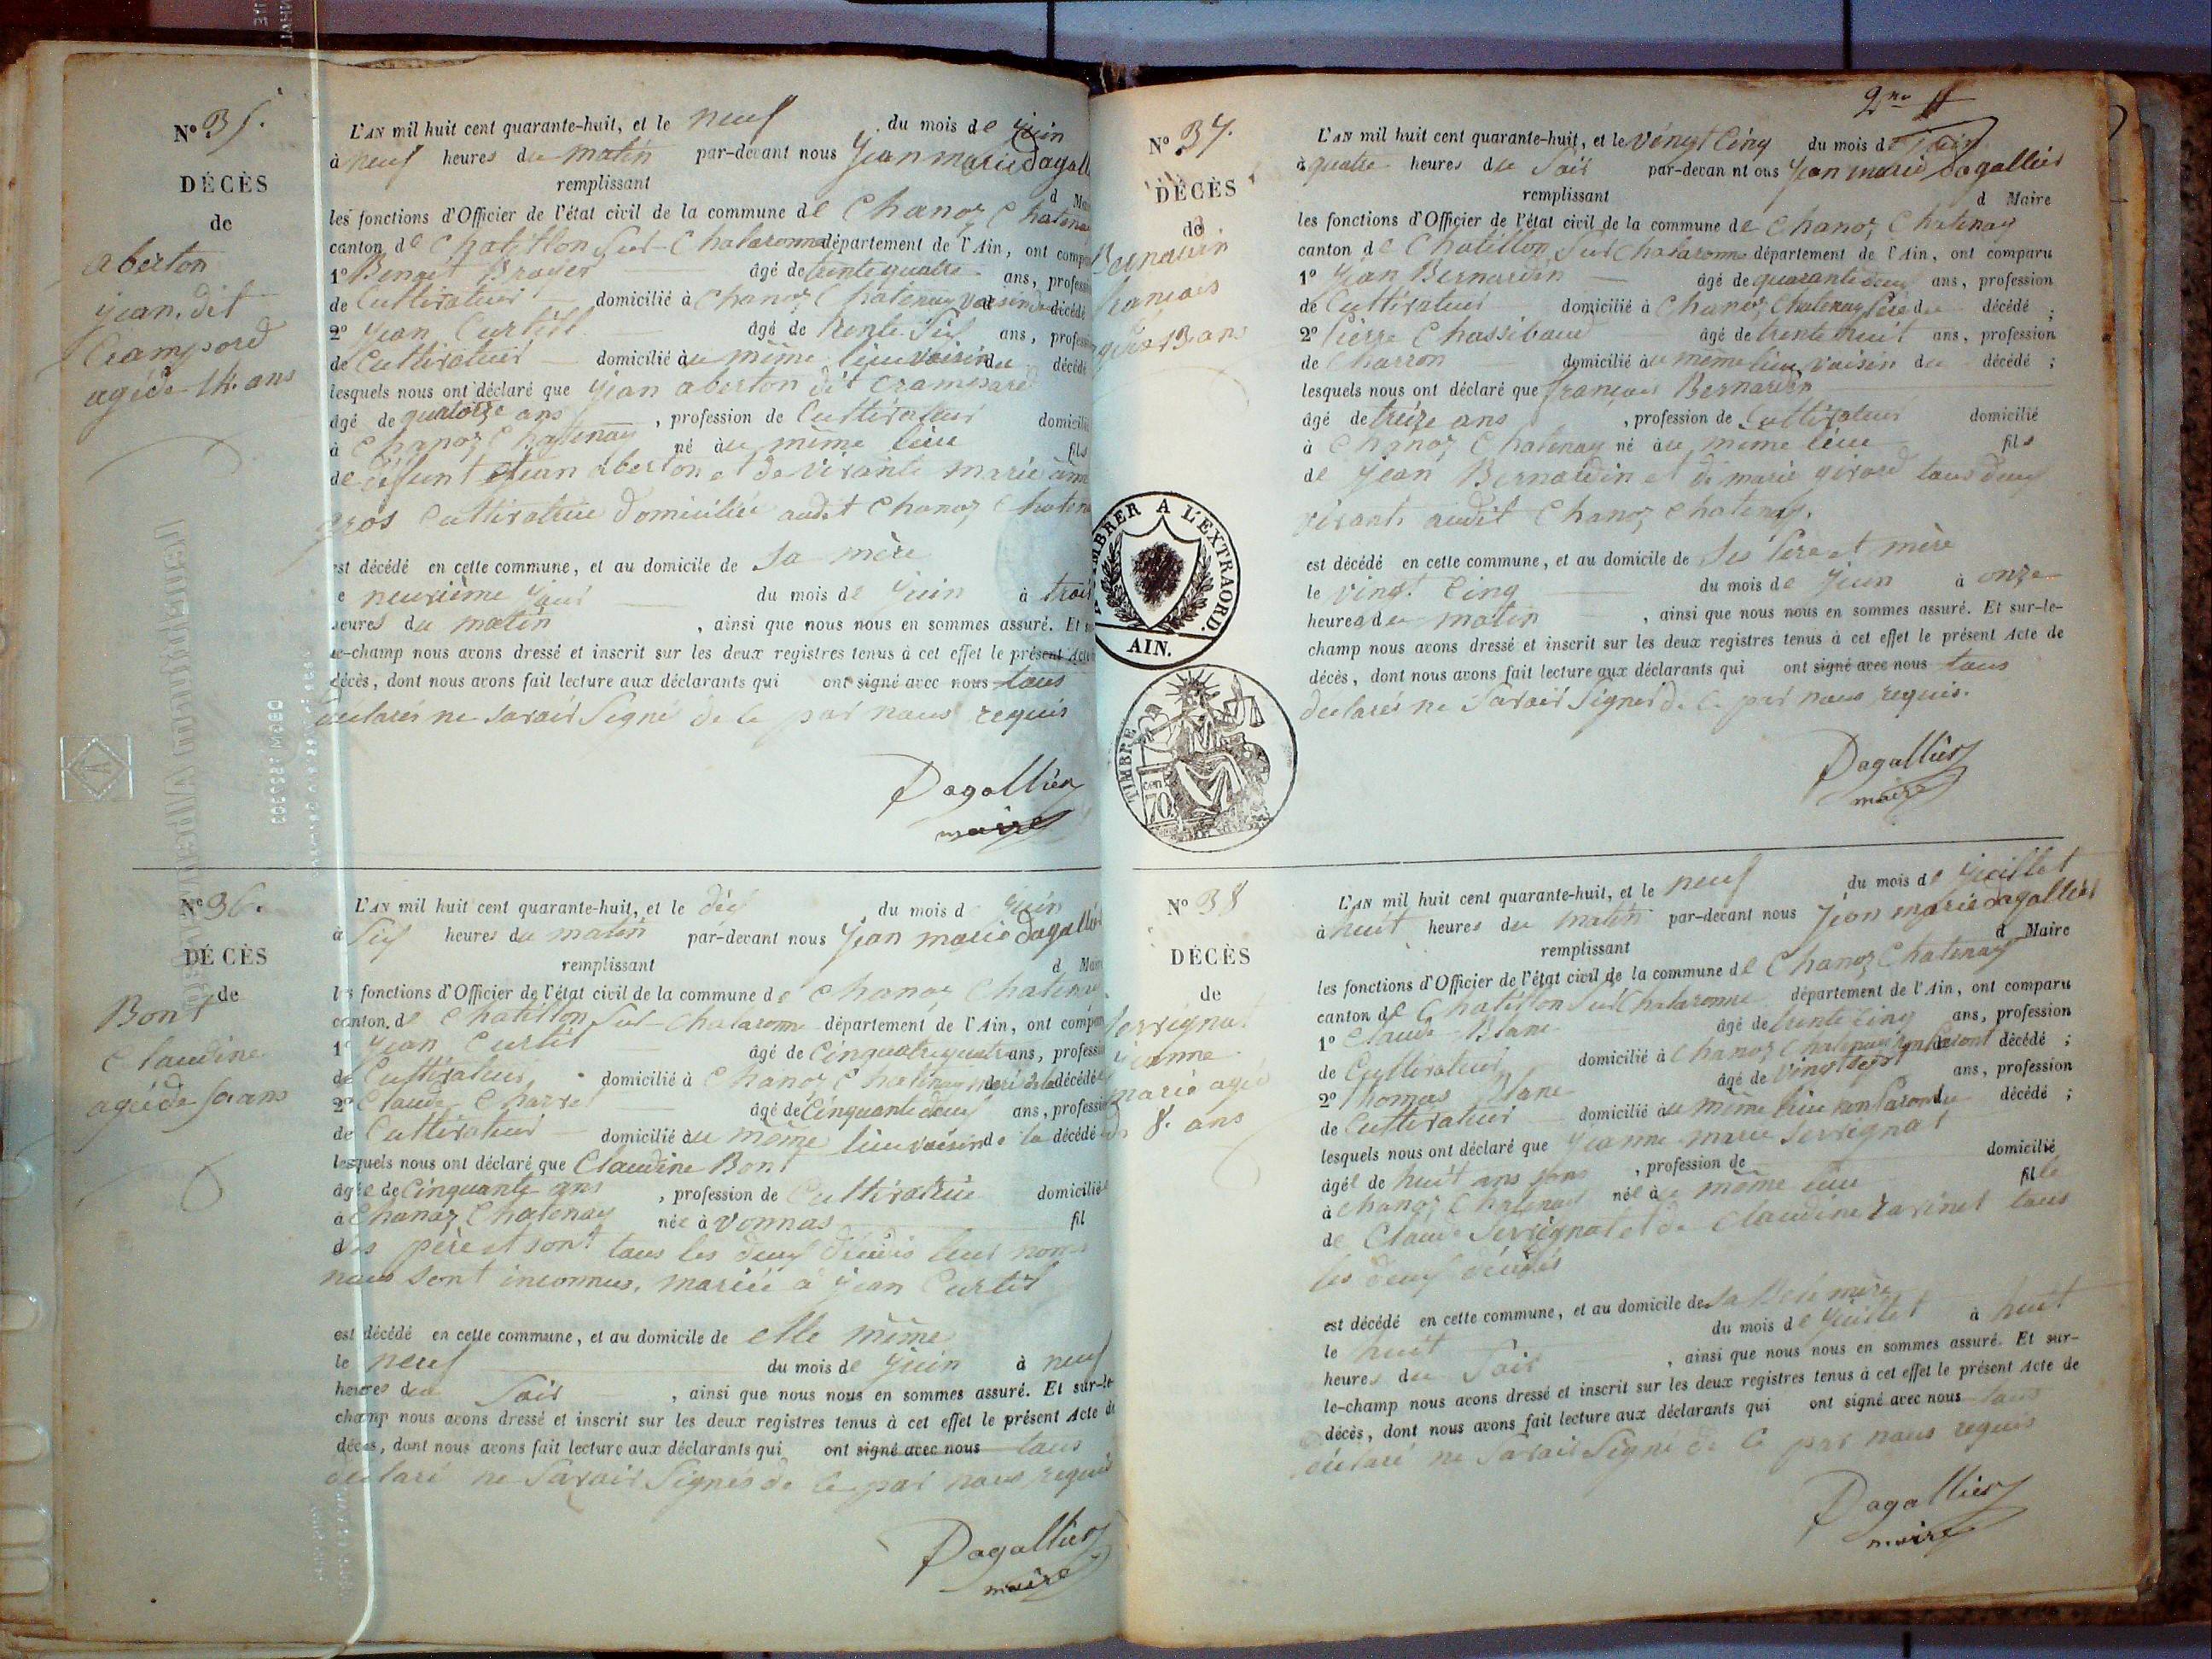 N° 35.
DÉCÈS
de
aberton
jean dit
Crampord
agé de 14. ans
L'AN mil huit cent quarante-huit, et le neuf du mois de juin
à neuf heures du matin par-devant nous Jean marie dagall
remplissant d Ma
les fonctions d'Officier de l'état civil de la commune de Chanoz Chatena
canton de Chatillon Sur-Chalaronne département de l'Ain, ont comp
1° Benoit Broyer âgé de trente quatre ans, profess
de Cultivateur domicilié à Chanoz Chatenay voisin du décédé
2° Jean Curtil âgé de trente Six ans, profess
de Cultivateur domicilié au même lieu voisin du décédé
lesquels nous ont déclaré que jean aberton dit
âgé de quatorze ans, profession de Cultivateur domicilié
à Chanoz Chatenay né au même lieu fils
de défunt jean aberton et de vivante marie
gros Cultivatrice domiciliée audit Chanoz Chatena
est décédé en cette commune, et au domicile de Sa mère
e neuvième jour du mois de juin à trois
heures du matin, ainsi que nous nous en sommes assuré. Et
le-champ nous avons dressé et inscrit sur les deux registres tenus à cet effet le présent Acte
décès, dont nous avons fait lecture aux déclarants qui ont signé avec nous tous
declarés ne savoir Signé de ce par nous requis
Dagallier
maire
N° 36.
DÉCÈS
de
Bont
Claudine
agée de 50 ans
L'AN mil huit cent quarante-huit, et le dix du mois d juin
à Six heures du matin par-devant nous Jean marie dagallier
remplissant d Mai
les fonctions d'Officier de l'état civil de la commune de Chanoz Chatenay
canton de Chatillon Sur-Chalaronne département de l'Ain, ont compar
1° Jean Curtil âgé de Cinquante quatre ans, profess
de Cultivateur domicilié à Chanoz Chatenay mari de la décédée
2° Claude Charvet âgé de Cinquante deux ans, profess
de Cultivateur domicilié au même lieu voisin de la décédé
lesquels nous ont déclaré que Claudine Bont
âgée de Cinquante ans, profession de Cultivatrice domiciliée
à Chanoz Chatenay née à vonnas fil
des père et sont tous les deux décédés leur noms
nous sont inconnus, mariée à jean Curtil
est décédé en cette commune, et au domicile de elle même
le neuf du mois de juin à neuf
heures du Soir, ainsi que nous nous en sommes assuré. Et sur-le
champ nous avons dressé et inscrit sur les deux registres tenus à cet effet le présent Acte de
décès, dont nous avons fait lecture aux déclarants qui ont signé avec nous tous
declaré ne Savoir Signés de ce par nous requis
Dagallier
maire
2me
N° 37.
DÉCÈS
de
Bernardin
francois
13 ans
L'AN mil huit cent quarante-huit, et le vingt Cinq du mois de juin
à quatre heures du Soir par-devan nt ous Jean marie dagallier
remplissant d Maire
les fonctions d'Officier de l'état civil de la commune de Chanoz Chatenay
canton de Chatillon Sur Chalaronne département de l'Ain, ont comparu
1° Jean Bernardin âgé de quarante deux ans, profession
de Cultivateur domicilié à Chanoz Chatenay Père du décédé ;
2° Pierre Chassibaud âgé de trente huit ans, profession
de Charron domicilié au même lieu voisin du décédé ;
lesquels nous ont déclaré que françois Bernardin
âgé de treize ans, profession de Cultivateur domicilié
à Chanoz Chatenay né au même lieu fils
de Jean Bernardin et de marie girard tous deux
vivants audit Chanoz Chatenay.
est décédé en cette commune, et au domicile de Ses Père et mère
le vingt Cinq du mois de juin à onze
heures du matin, ainsi que nous nous en sommes assuré. Et sur-le-
champ nous avons dressé et inscrit sur les deux registres tenus à cet effet le présent Acte de
décès, dont nous avons fait lecture aux déclarants qui ont signé avec nous tous
declarés ne Savoir Signer de ce par nous requis.
Dagallier
maire
TIMBRER A L'EXTRAORD.
AIN.
TIMBRE
cen
70
N° 38
DÉCÈS
de
Servignat
jeanne
marie agée
de 8. ans
L'AN mil huit cent quarante-huit, et le neuf du mois de juillet
à huit heures du matin par-devant nous Jean marie dagallier
remplissant d Maire
les fonctions d'Officier de l'état civil de la commune de Chanoz Chatenay
canton de Chatillon Sur Chalaronne département de l'Ain, ont comparu
1° Claude Blanc âgé de trente Cinq ans, profession
de Cultivateur domicilié à Chanoz Chatenay décédé ;
2° Thomas Blanc âgé de vingt sept ans, profession
de Cultivateur domicilié au même lieu décédé ;
lesquels nous ont déclaré que jeanne marie Servignat
âgée de huit ans sans, profession de domicilié
à Chanoz Chatenay née au même lieu fille
de Claude Servignat et de Claudine ravinet tous
les deux décédés
est décédé en cette commune, et au domicile de Sa Bele mère
le huit du mois de juillet à huit
heures du Soir, ainsi que nous nous en sommes assuré. Et sur-
le-champ nous avons dressé et inscrit sur les deux registres tenus à cet effet le présent Acte de
décès, dont nous avons fait lecture aux déclarants qui ont signé avec nous tous
déclaré ne Savoir Signé de ce par nous requis
Dagallier
maire